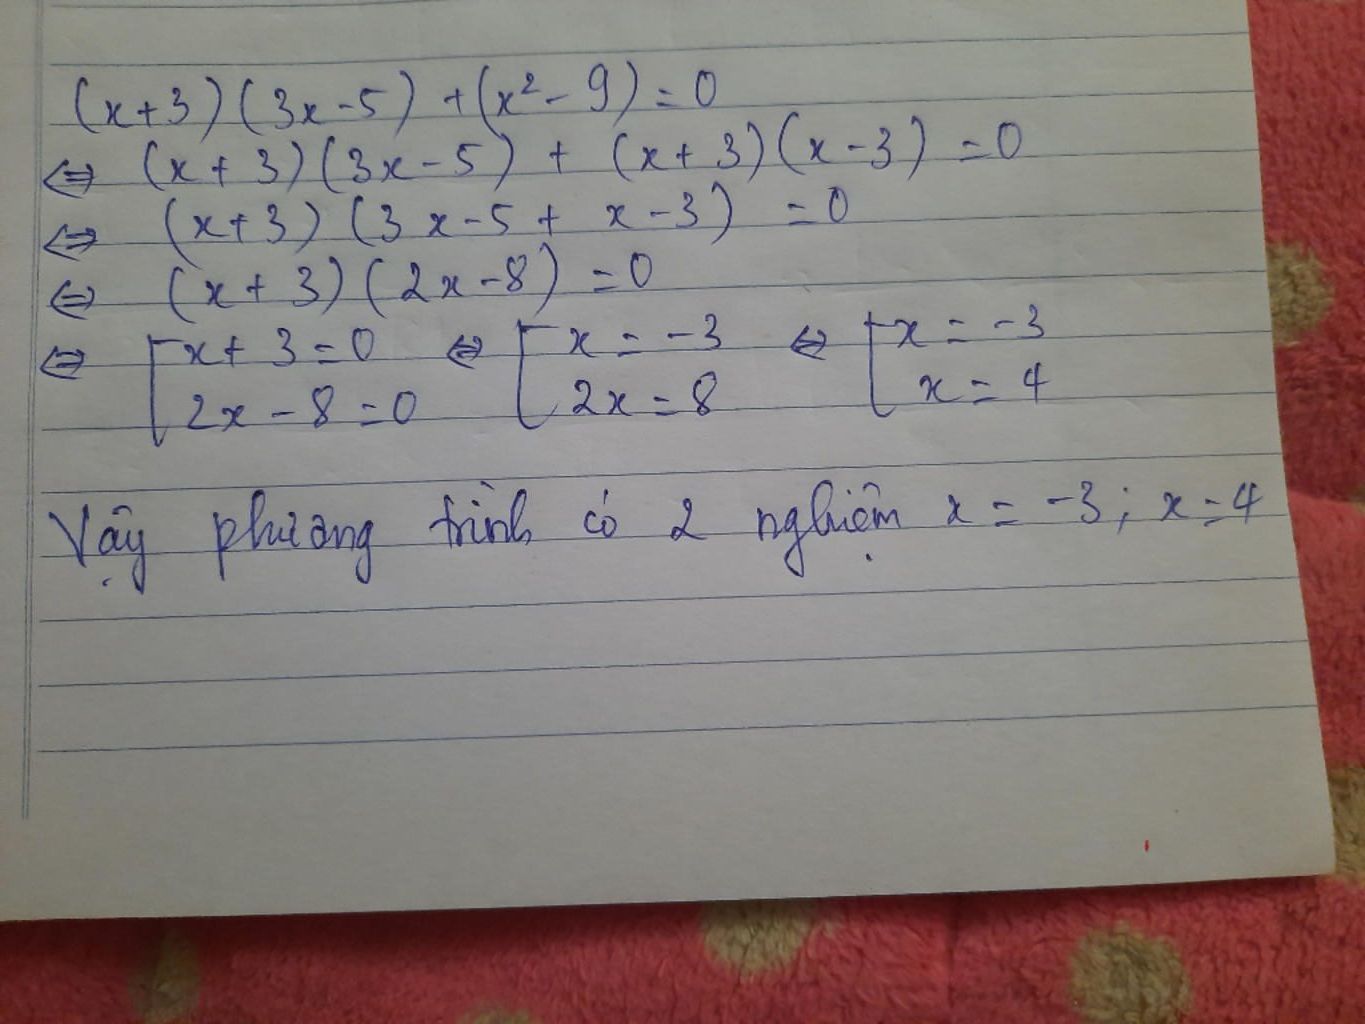 (x+3)(3x-5) +(x²- 9)=0
⇔ (x + 3)(3x-5) + (x+3)(x-3) =0
⇔ (x+3) (3x-5+ x-3) =0
⇔ (x+3)(2x-8)=0
⇔ [x+3=0 ⇔ [x = -3 ⇔ [x = -3
2x-8=0 2x=8 x=4
Vậy phương trình có 2 nghiệm x = -3; x=4